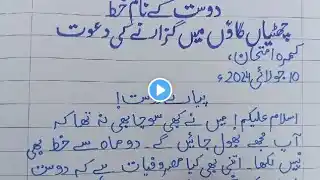 دوست کے نام خط
چھٹیاں گاؤں میں گزارنے کی دعوت
کمرہ امتحان،
10 جولائی 2024ء
پیارے دوست!
اسلام علیکم! میں نے کبھی سوچا بھی نہ تھا کہ
آپ مجھے بھول جائیں گے۔ دو ماہ سے خط بھی
نہیں لکھا۔ اتنی بھی کیا مصروفیات ہے کہ دوست